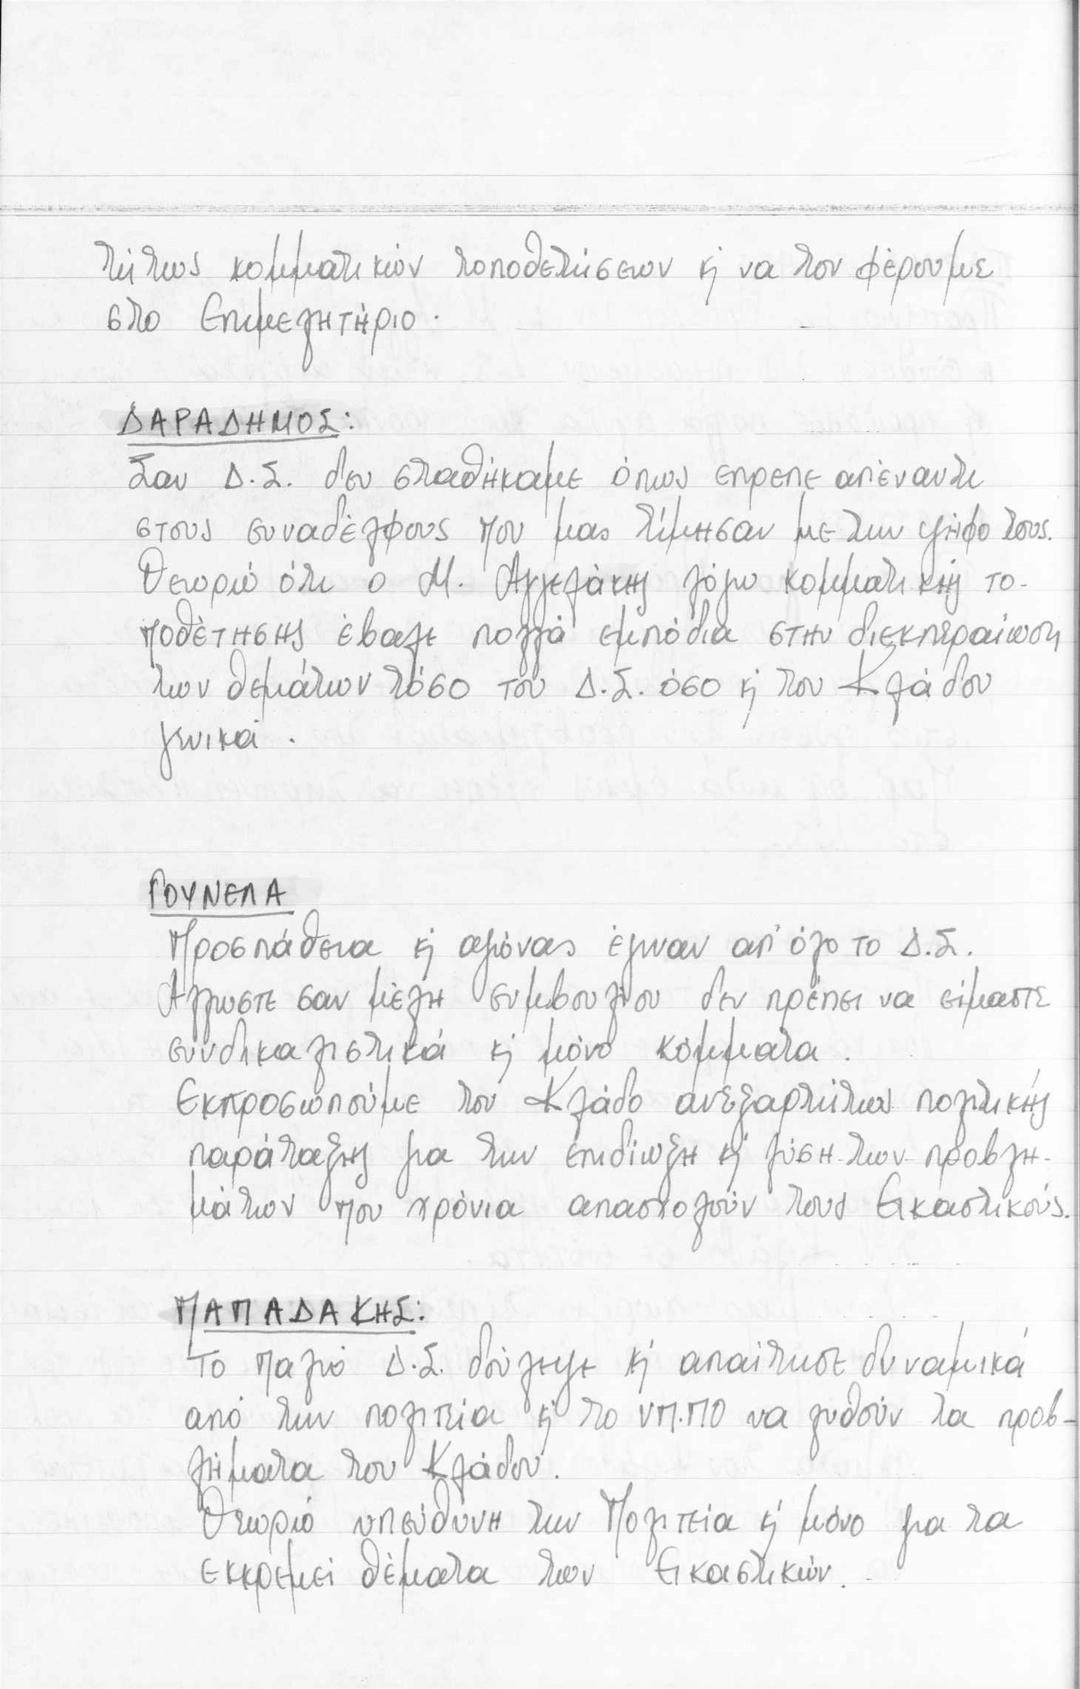 τήτως κομματικών τοποθετήσεων κ' να τον φέρουμε
στο Επιμελητήριο.
ΔΑΡΑΔΗΜΟΣ:
Σαν Δ.Σ. δεν σταθήκαμε όπως επρεπε απέναντι
στους συναδέλφους που μας τίμησαν με την ψήφο τους.
Θεωρώ ότι ο Μ. Αγγελάκης λόγω κομματικής το-
ποθέτησης έβαλε πολλά εμπόδια στην διεκπεραίωση
των θεμάτων τόσο του Δ.Σ. όσο κ' του Κλάδου
γενικά.
ΓΟΥΝΕΛΑ
Προσπάθεια κ' αγώνας έγιναν απ' όλο το Δ.Σ.
Αλλωστε σαν μέλη συμβουλίου δεν πρέπει να είμαστε
συνδικαλιστικά κ' μόνο κόμματα.
Εκπροσωπούμε τον Κλάδο ανεξαρτήτως πολιτικής
παράταξης για την επιδίωξη κ' λύση των προβλη-
μάτων που χρόνια απασχολούν τους Εικαστικούς.
ΠΑΠΑΔΑΚΗΣ:
Το παλιό Δ.Σ. δούλεψε κ' απαίτησε δυναμικά
από την πολιτεία κ' το ΥΠ.ΠΟ να λυθούν τα προβ-
λήματα του Κλάδου.
Θεωρώ υπεύθυνη την Πολιτεία κ' μόνο για τα
εκκρεμεί θέματα των Εικαστικών.